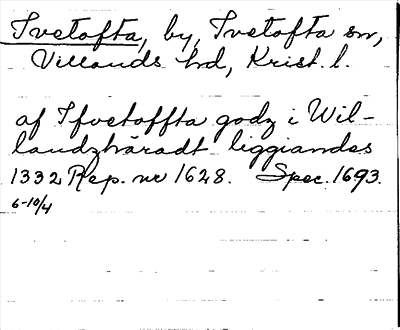 Ivetofta, by, Ivetofta sn,
Villands hd, Krist. l.
af Ifvetoffta godz i Wil-
landzhäradt liggiandes
1332 Rep. nr 1628. Spec. 1693.
6-10/4